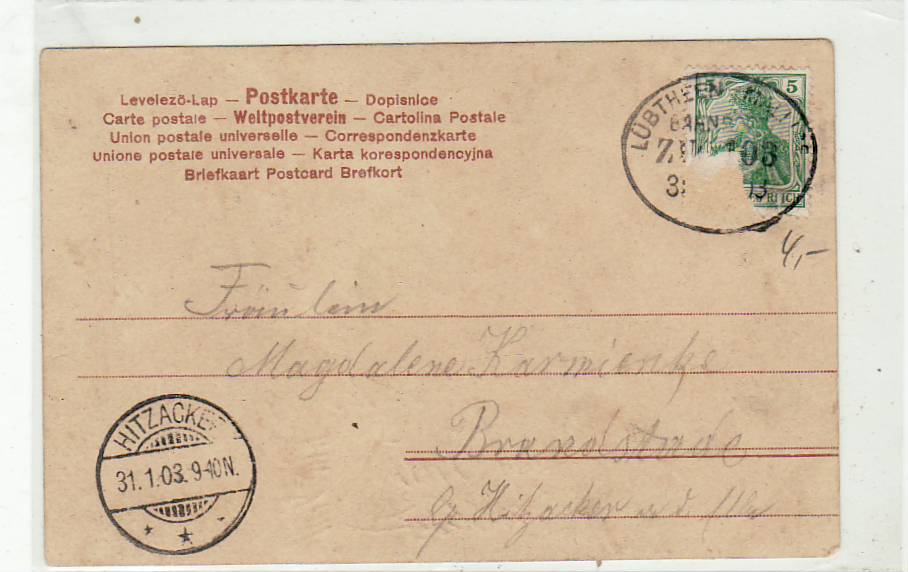 Levelező-Lap — Postkarte — Dopisnice
Carte postale — Weltpostverein — Cartolina Postale
Union postale universelle — Correspondenzkarte
Unione postale universale — Karta korespondencyjna
Briefkaart Postcard Brefkort
5
LÜBTHEEN
BAHNPOST
ZUG 03
31 03
REICH
4,-
Fräulein
Magdalene Karmienke
Brandstade
HITZACKER
31.1.03. 9-10N.
Hitzacker a d Elbe